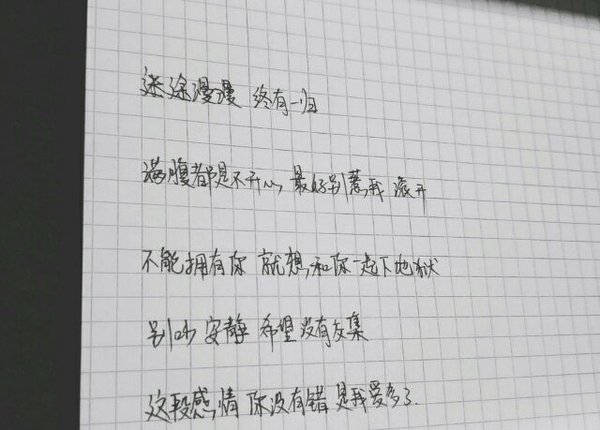 迷途漫漫 终有一归
满腹都是不开心 最好别惹我 滚开
不能拥有你 就想和你一起下地狱
别吵 安静 希望没有交集
这段感情 你没有错 是我爱多了.